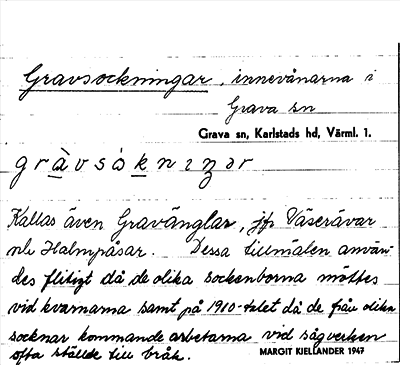 Gravsockningar, innevånarna i
Grava sn
Grava sn, Karlstads hd, Värml. 1.
gràvsòknıŋər
Kallas även Gravänglar, jfr Väserävar
o Halmpåsar. Dessa tillmälen använ-
des flitigt då de olika sockenborna möttes
vid kvarnarna samt på 1910-talet då de från olika
socknar kommande arbetarna vid sågverken
ofta ställde till bråk.
MARGIT KIELLANDER 1947